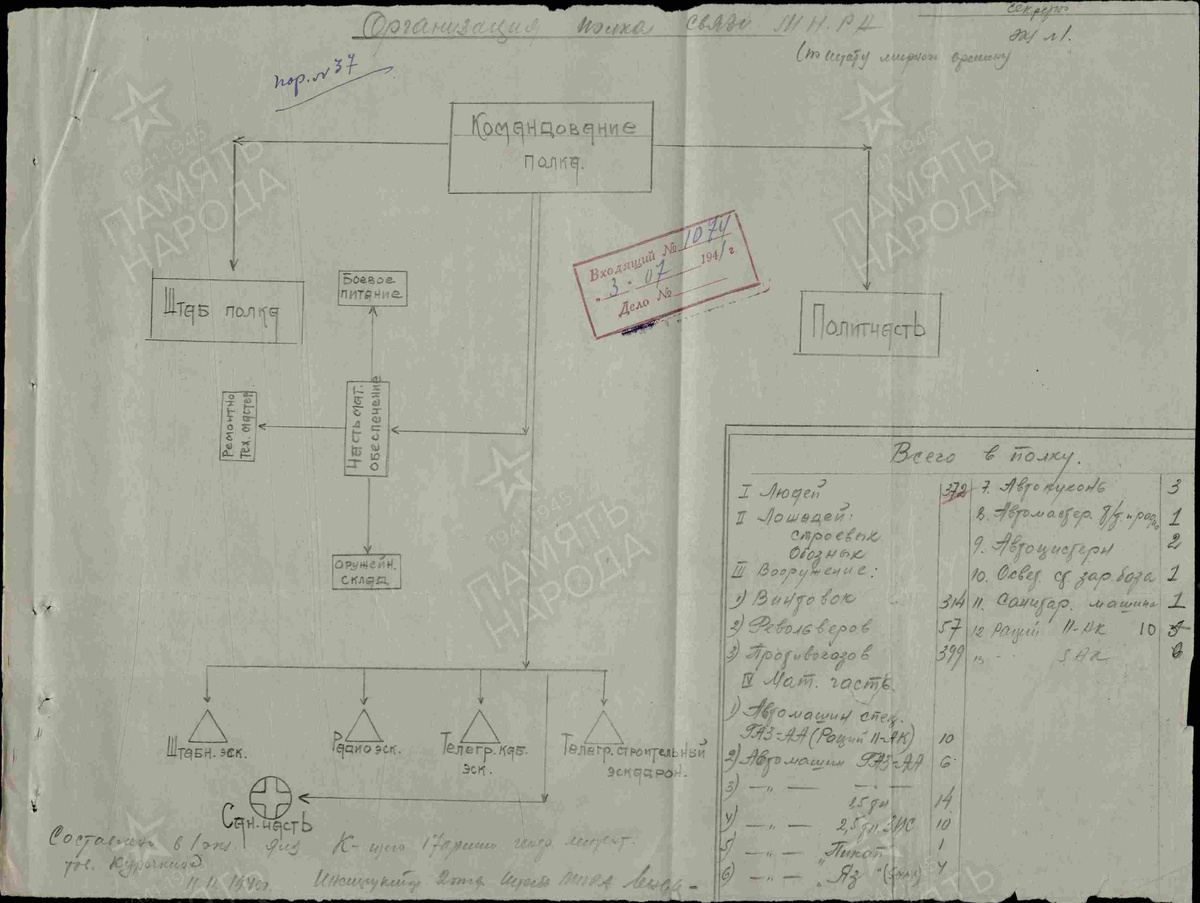 Секретно
Организация полка связи М Н. Р А
Эк №1.
(по штату мирного времени)
пор. № 37
Командование
полка.
Входящий № 1074
"3" 07 1941 г.
Дело №
Штаб полка
Боевое
питание
Политчасть
Ремонтно
тех. мастер
Часть мат.
обеспечение
Оружейн.
склад
Всего в полку.
I Людей 372
II Лошадей:
строевых
Обозных
III Вооружение:
1) Винтовок 314
2) Револьверов 57
3) Противогазов 399
IV Мат. часть.
1) Автомашин спец.
ГАЗ-АА (Раций 11-АК) 10
2) Автомашин ГАЗ-АА 6
3) —„— —
1,5 тн 14
4) —„— 2,5 тн. ЗИС 10
5) —„— „Пикап" 1
6) —„— „Яз" (5АК) 4
7. Автокухонь 3
8. Автомастер. т/т. и радио 1
9. Автоцистерн 2
10. Освет. ст. зар. база 1
11. Санитар. машина 1
12 Раций 11-АК 10
13 -„- 5АК 6
Штабн. эск.
Радио эск.
Телегр. каб.
эск.
Телегр. строительный
эскадрон.
Сан. часть
Составлено в 1 экз.
тов. Курочкина
11.11.1940г.
ПАМЯТЬ
НАРОДА
1941-1945
ПАМЯТЬ
НАРОДА
1941-1945
ПАМЯТЬ
НАРОДА